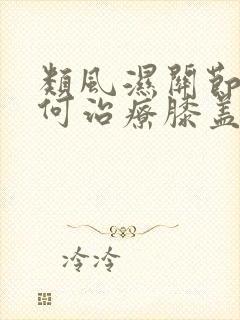 類風濕關節
何治療膝蓋
冷冷